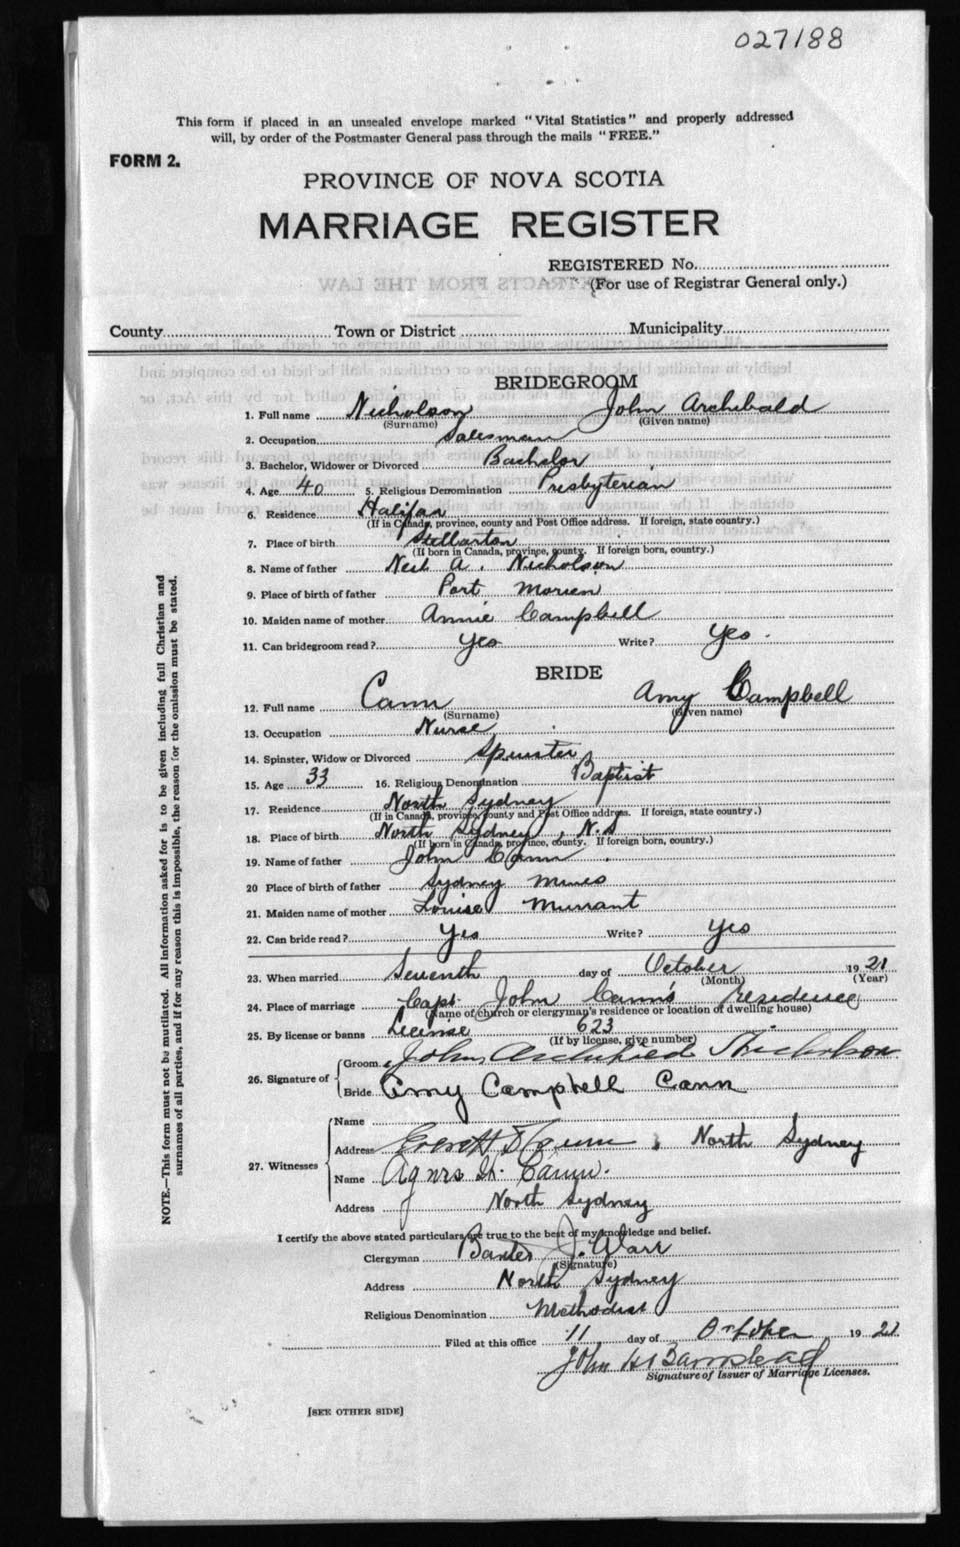 027188
This form if placed in an unsealed envelope marked "Vital Statistics" and properly addressed
will, by order of the Postmaster General pass through the mails "FREE."
FORM 2.
PROVINCE OF NOVA SCOTIA
MARRIAGE REGISTER
REGISTERED No.
(For use of Registrar General only.)
County Town or District Municipality
BRIDEGROOM
1. Full name Nicholson John Archibald
(Surname) (Given name)
2. Occupation Salesman
3. Bachelor, Widower or Divorced Bachelor
4. Age 40 5. Religious Denomination Presbyterian
6. Residence Halifax
(If in Canada, province, county and Post Office address. If foreign, state country.)
7. Place of birth Stellarton
(If born in Canada, province, county. If foreign born, country.)
8. Name of father Neil A. Nicholson
9. Place of birth of father Port Morien
10. Maiden name of mother Annie Campbell
11. Can bridegroom read? Yes Write? Yes.
BRIDE
12. Full name Cann Amy Campbell
(Surname) (Given name)
13. Occupation Nurse
14. Spinster, Widow or Divorced Spinster
15. Age 33 16. Religious Denomination Baptist
17. Residence North Sydney
(If in Canada, province, county and Post Office address. If foreign, state country.)
18. Place of birth North Sydney, N.S
(If born in Canada, province, county. If foreign born, country.)
19. Name of father John Cann
20 Place of birth of father Sydney Mines
21. Maiden name of mother Louise Murrant
22. Can bride read? Yes Write? Yes
23. When married Seventh day of October 1921
(Month) (Year)
24. Place of marriage Capt. John Cann's residence
(Name of church or clergyman's residence or location of dwelling house)
25. By license or banns License 623
(If by license, give number)
26. Signature of Groom John Archibald Nicholson
Bride Amy Campbell Cann
27. Witnesses Name
Address Everett Cann, North Sydney
Name Agnes Cann.
Address North Sydney
I certify the above stated particulars are true to the best of my knowledge and belief.
Clergyman J.
(Signature)
Address North Sydney
Religious Denomination Methodist
Filed at this office 11 day of October 1921
John
Signature of Issuer of Marriage Licenses.
[SEE OTHER SIDE]
NOTE.—This form must not be mutilated. All information asked for is to be given including full Christian and
surnames of all parties, and if for any reason this is impossible, the reason for the omission must be stated.